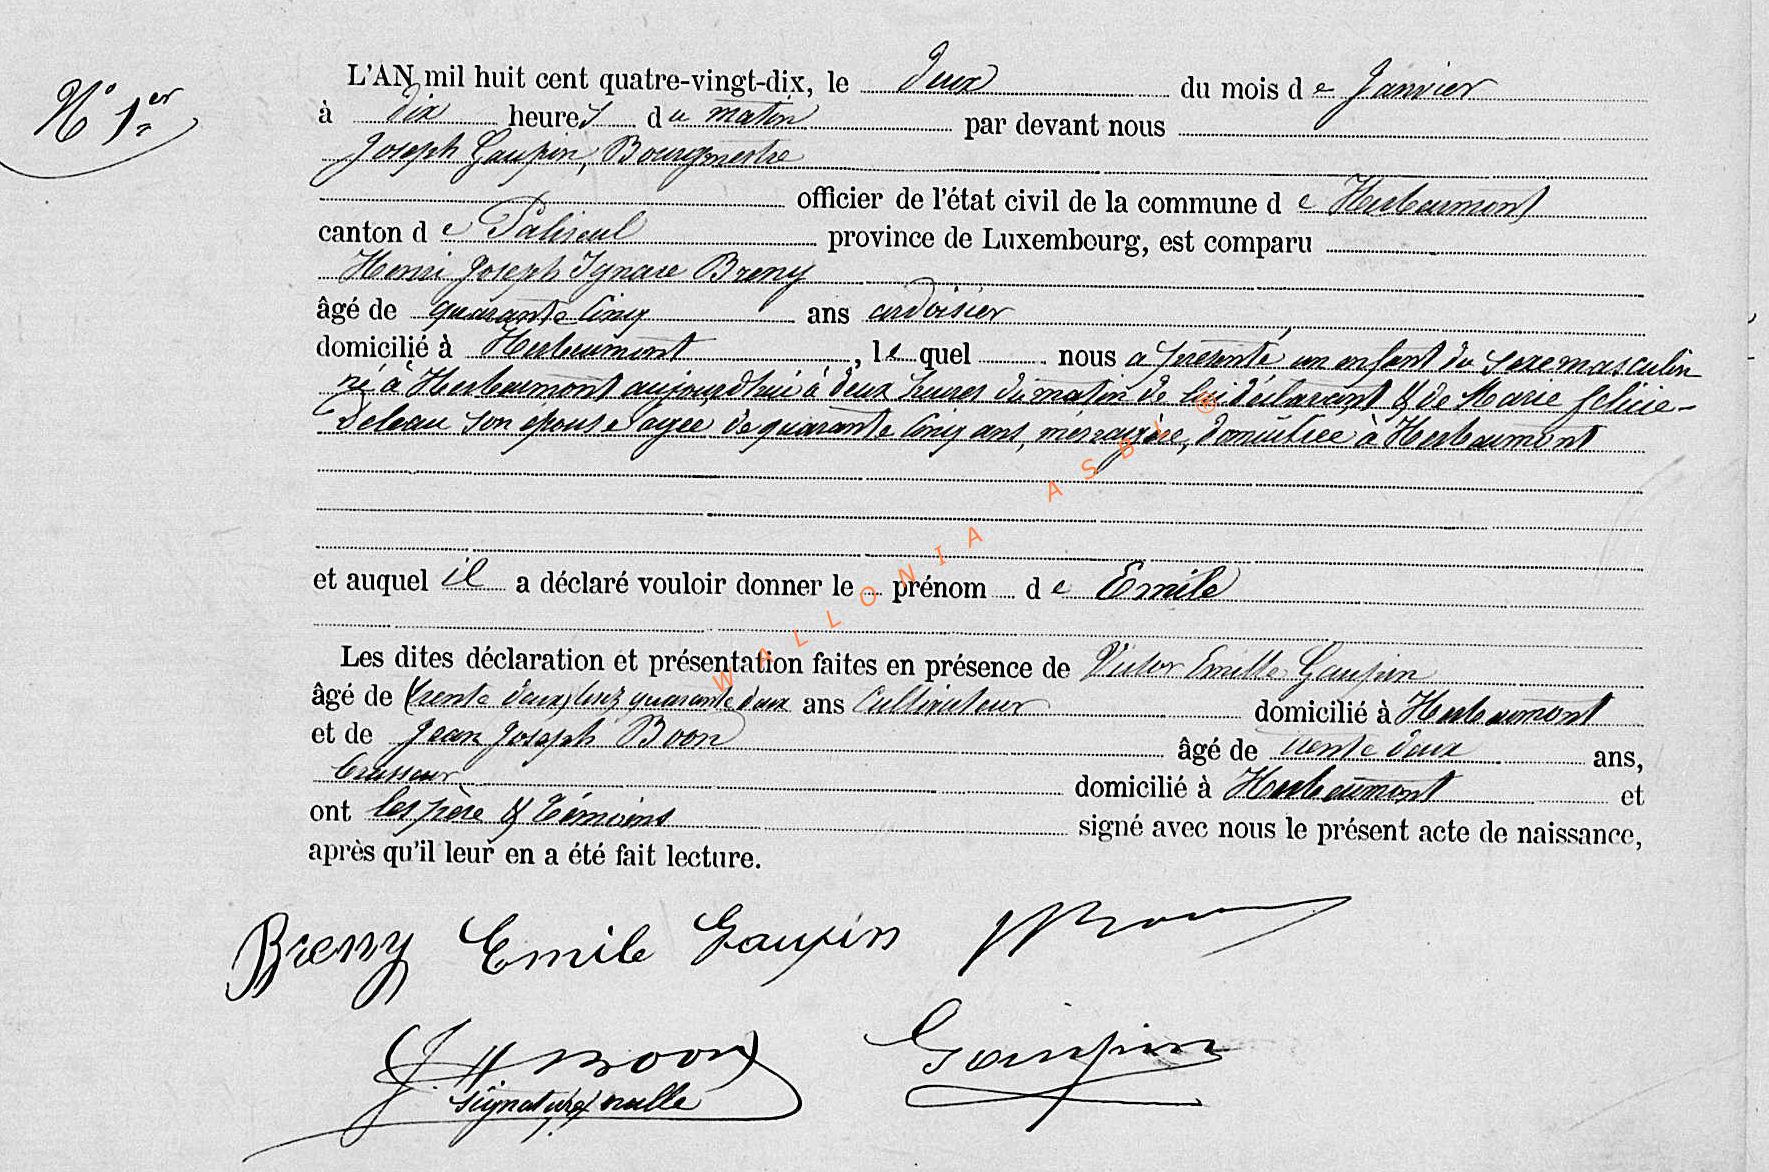 N° 1er
L'AN mil huit cent quatre-vingt-dix, le deux du mois de Janvier
à dix heures du matin par devant nous
Joseph Gaupin, Bourgmestre
officier de l'état civil de la commune de Herbeumont
canton de Paliseul province de Luxembourg, est comparu
Henri Joseph Ignace Breny
âgé de quarante cinq ans ardoisier
domicilié à Herbeumont, lequel nous a présenté un enfant du sexe masculin
né à Herbeumont aujourd'hui à deux heures du matin de lui déclarant & de Marie Félicie
Deleau son épouse agée de quarante cinq ans, ménagère, domiciliée à Herbeumont
et auquel il a déclaré vouloir donner le prénom de Emile
Les dites déclaration et présentation faites en présence de Victor Emille Gaupin
âgé de (trente deux) lisez quarante deux ans Cultivateur domicilié à Herbeumont
et de Jean Joseph Boon âgé de trente deux ans,
brasseur domicilié à Herbeumont et
ont les père & témoins signé avec nous le présent acte de naissance,
après qu'il leur en a été fait lecture.
Breny Emile Gaupin
J Boon Gaupin
signature nulle
WALLONIA ASBL ®